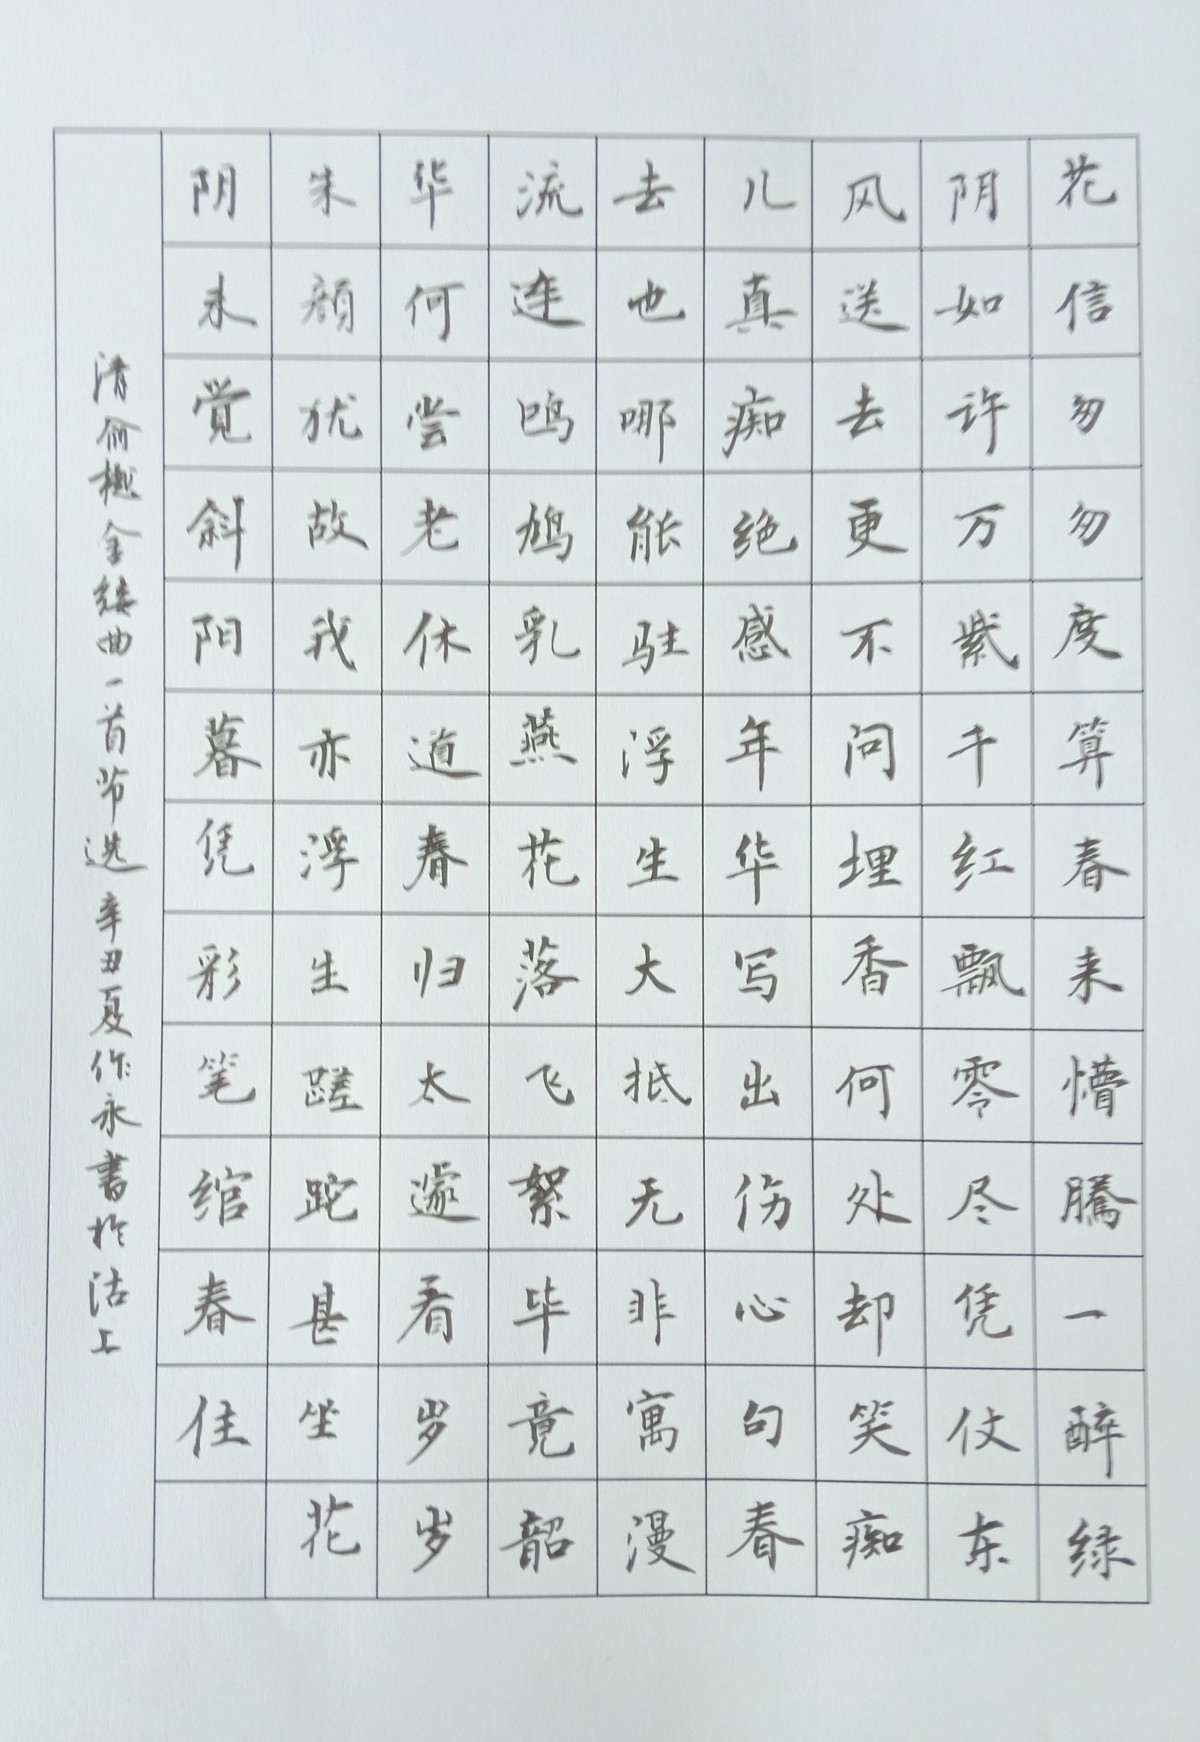 花信匆匆度算春来懵腾一醉绿
阴如许万紫千红飘零尽凭仗东
风送去更不问埋香何处却笑痴
儿真痴绝感年华写出伤心句春
去也哪能驻浮生大抵无非寓漫
流连鸣鸠乳燕花落飞絮毕竟韶
华何尝老休道春归太遽看岁岁
朱颜犹故我亦浮生蹉跎甚坐花
阴未觉斜阳暮凭彩笔绾春住
清俞樾金缕曲一首节选辛丑夏作永书于沽上